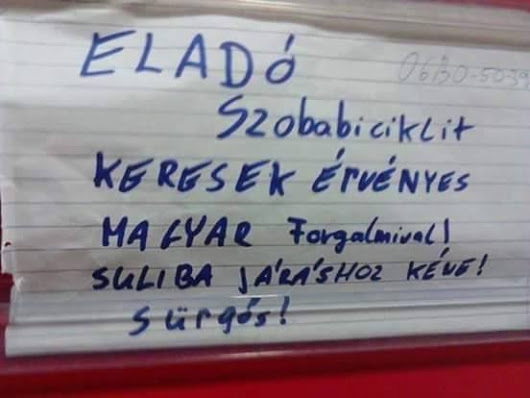 ELADÓ
Szobabiciklit
KERESEK ÉRVÉNYES
MAGYAR Forgalmival!
SULIBA JÁRÁSHOZ KÉVE!
Sürgős!